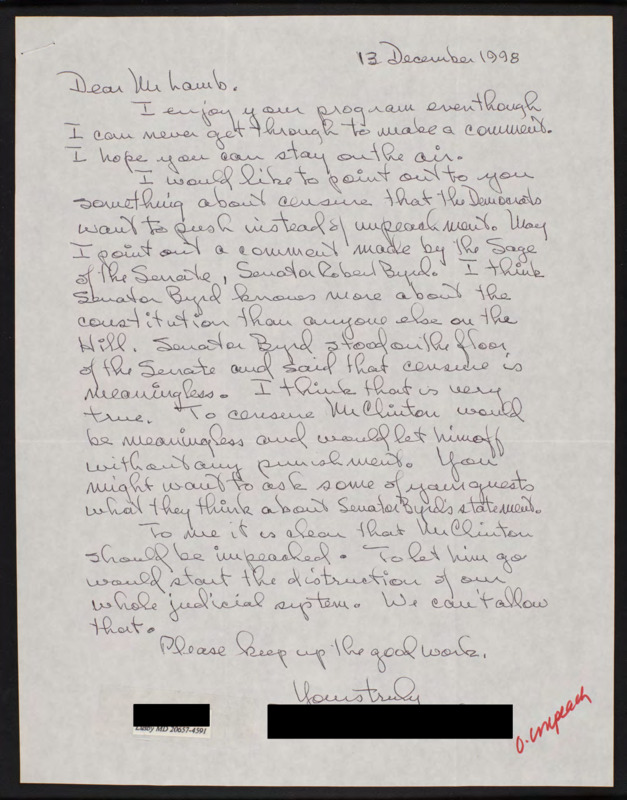 13 December 1998
Dear Mr Lamb.
I enjoy your program eventhough
I can never get through to make a comment.
I hope you can stay on the air.
I would like to point out to you
something about censure that the Democrats
want to push instead of impeachment. May
I point out a comment made by the Sage
of the Senate, Senator Robert Byrd. I think
Senator Byrd knows more about the
constitution than anyone else on the
Hill. Senator Byrd stood on the floor
of the Senate and said that censure is
meaningless. I think that is very
true. To censure Mr Clinton would
be meaningless and would let him off
without any punishment. You
might want to ask some of your guests
what they think about Senator Byrd's statement.
To me it is clear that Mr Clinton
should be impeached. To let him go
would start the distruction of our
whole judicial system. We can't allow
that.
Please keep up the good work.
Yours truly
Lusby MD 20657-4591
O. impeach